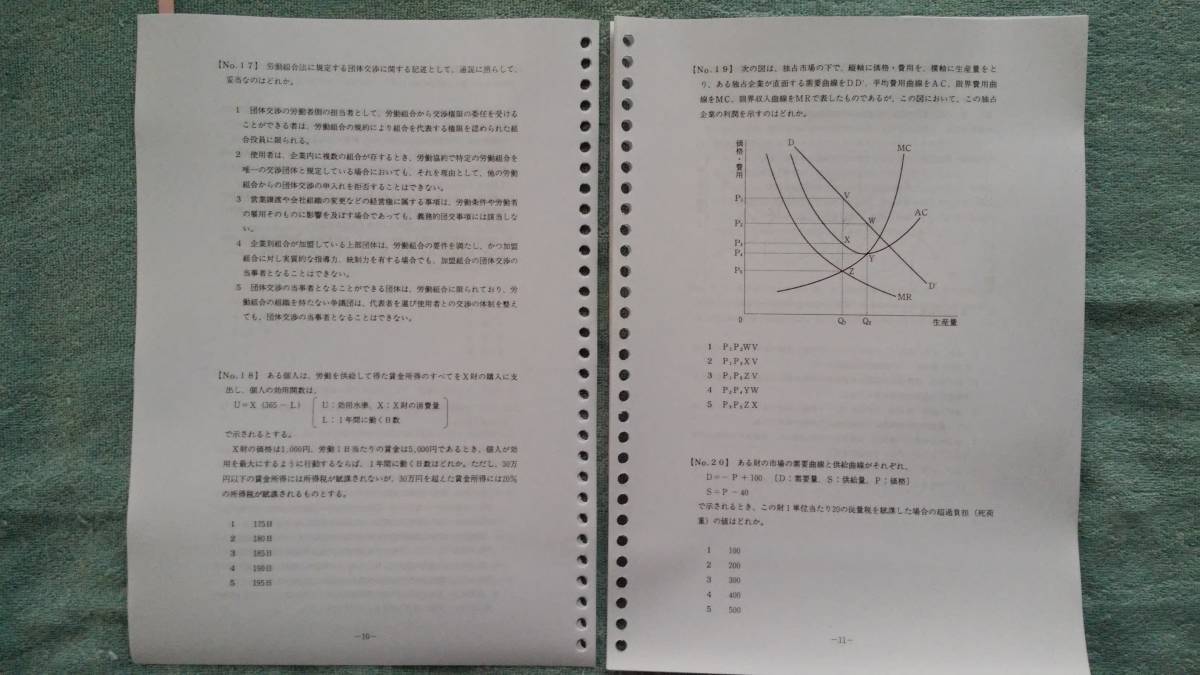 【No.17】 労働組合法に規定する団体交渉に関する記述として、通説に照らして、
妥当なのはどれか。
1 団体交渉の労働者側の担当者として、労働組合から交渉権限の委任を受ける
ことができる者は、労働組合の規約により組合を代表する権限を認められた組
合役員に限られる。
2 使用者は、企業内に複数の組合が存するとき、労働協約で特定の労働組合を
唯一の交渉団体と規定している場合においても、それを理由として、他の労働
組合からの団体交渉の申入れを拒否することはできない。
3 営業譲渡や会社組織の変更などの経営権に属する事項は、労働条件や労働者
の雇用そのものに影響を及ぼす場合であっても、義務的団交事項には該当しな
い。
4 企業別組合が加盟している上部団体は、労働組合の要件を満たし、かつ加盟
組合に対し実質的な指導力、統制力を有する場合でも、加盟組合の団体交渉の
当事者となることはできない。
5 団体交渉の当事者となることができる団体は、労働組合に限られており、労
働組合の組織を持たない争議団は、代表者を選び使用者との交渉の体制を整え
ても、団体交渉の当事者となることはできない。
【No.18】 ある個人は、労働を供給して得た賃金所得のすべてをX財の購入に支
出し、個人の効用関数は、
U=X (365-L) U:効用水準、X:X財の消費量
L:1年間に働く日数
で示されるとする。
X財の価格は1,000円、労働1日当たりの賃金は5,000円であるとき、個人が効
用を最大にするように行動するならば、1年間に働く日数はどれか。ただし、30万
円以下の賃金所得には所得税が賦課されないが、30万円を超えた賃金所得には20%
の所得税が賦課されるものとする。
1 175日
2 180日
3 185日
4 190日
5 195日
-10-
【No.19】 次の図は、独占市場の下で、縦軸に価格・費用を、横軸に生産量をと
り、ある独占企業が直面する需要曲線をDD'、平均費用曲線をAC、限界費用曲
線をMC、限界収入曲線をMRで表したものであるが、この図において、この独占
企業の利潤を示すのはどれか。
価格・費用
D
MC
P₁
V
AC
P₂
W
P₃
X
P₄
Y
P₅
Z
D'
MR
0
Q₁
Q₂
生産量
1 P₁P₂WV
2 P₁P₃XV
3 P₁P₅ZV
4 P₂P₄YW
5 P₃P₅ZX
【No.20】 ある財の市場の需要曲線と供給曲線がそれぞれ、
D=-P+100 [D:需要量、S:供給量、P:価格]
S=P-40
で示されるとき、この財1単位当たり20の従量税を賦課した場合の超過負担(死荷
重)の値はどれか。
1 100
2 200
3 300
4 400
5 500
-11-